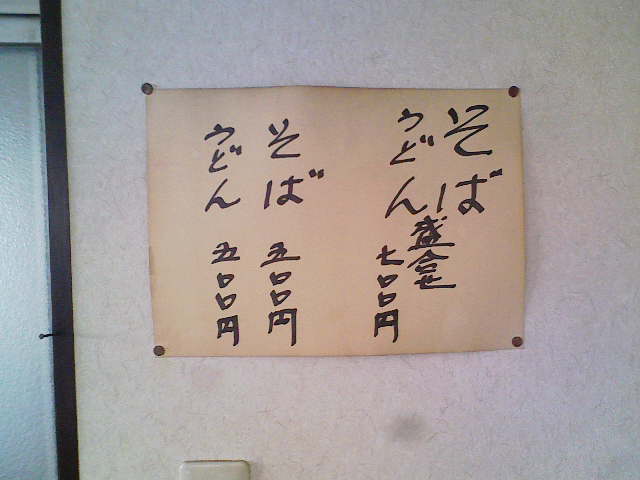 そば
うどん
盛合せ
七〇〇円
そば 五〇〇円
うどん 五〇〇円